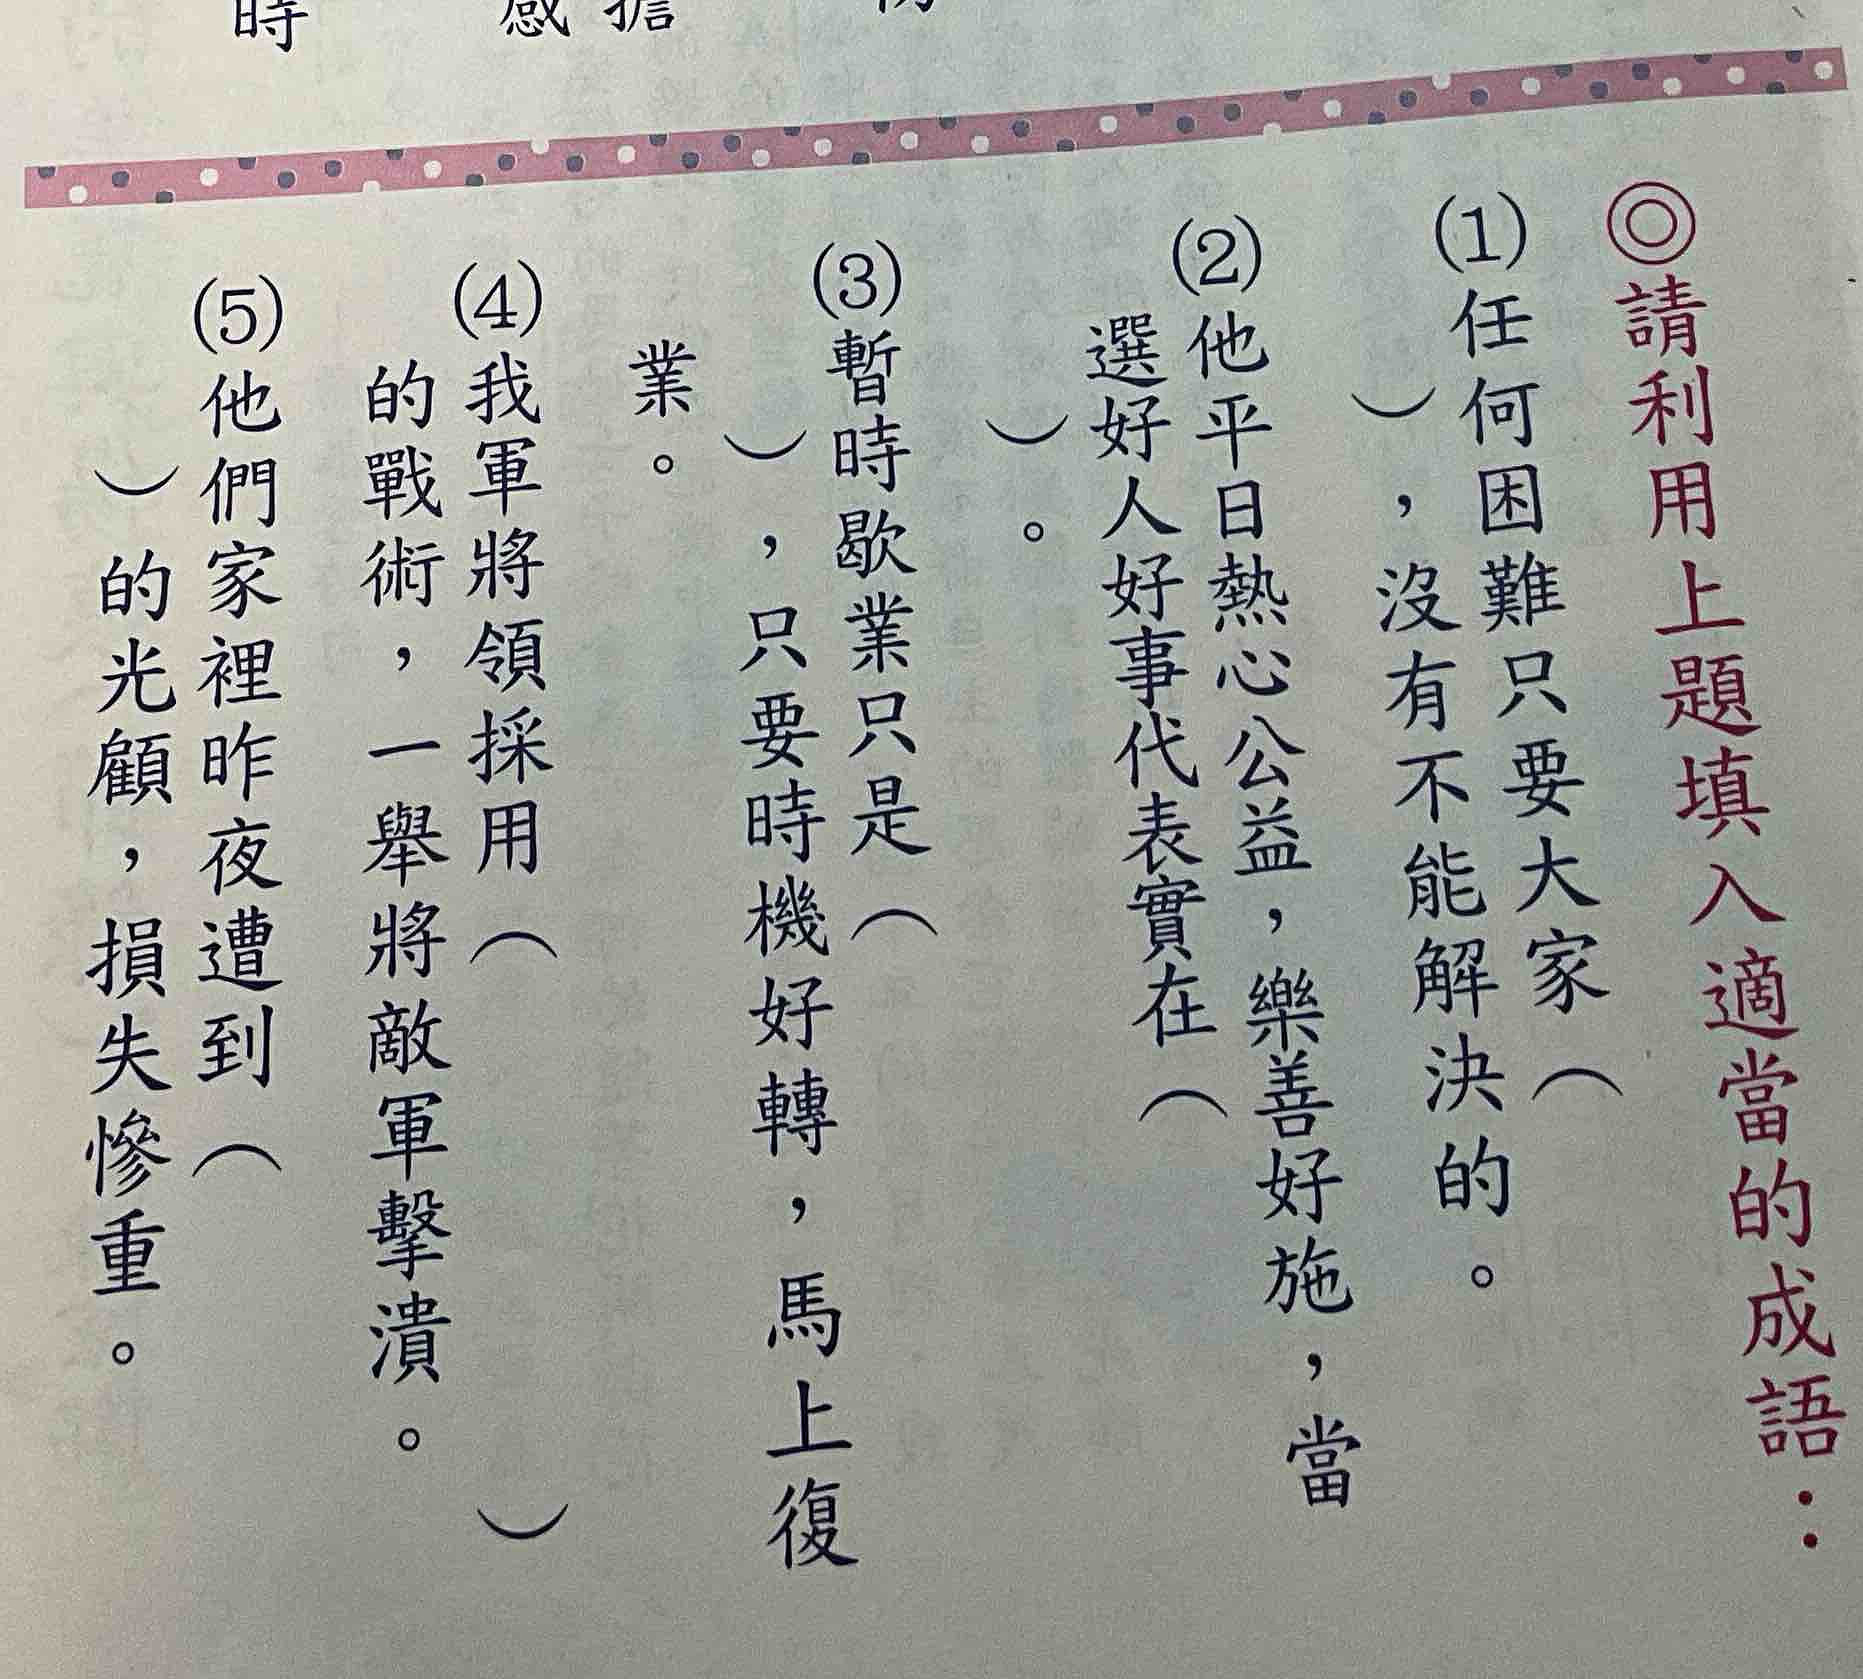 時
感
擔
◎請利用上題填入適當的成語：
(1)任何困難只要大家（
），沒有不能解決的。
(2)他平日熱心公益，樂善好施，當
選好人好事代表實在（
）。
(3)暫時歇業只是（
），只要時機好轉，馬上復
業。
(4)我軍將領採用（　　　　　）
的戰術，一舉將敵軍擊潰。
(5)他們家裡昨夜遭到（
）的光顧，損失慘重。